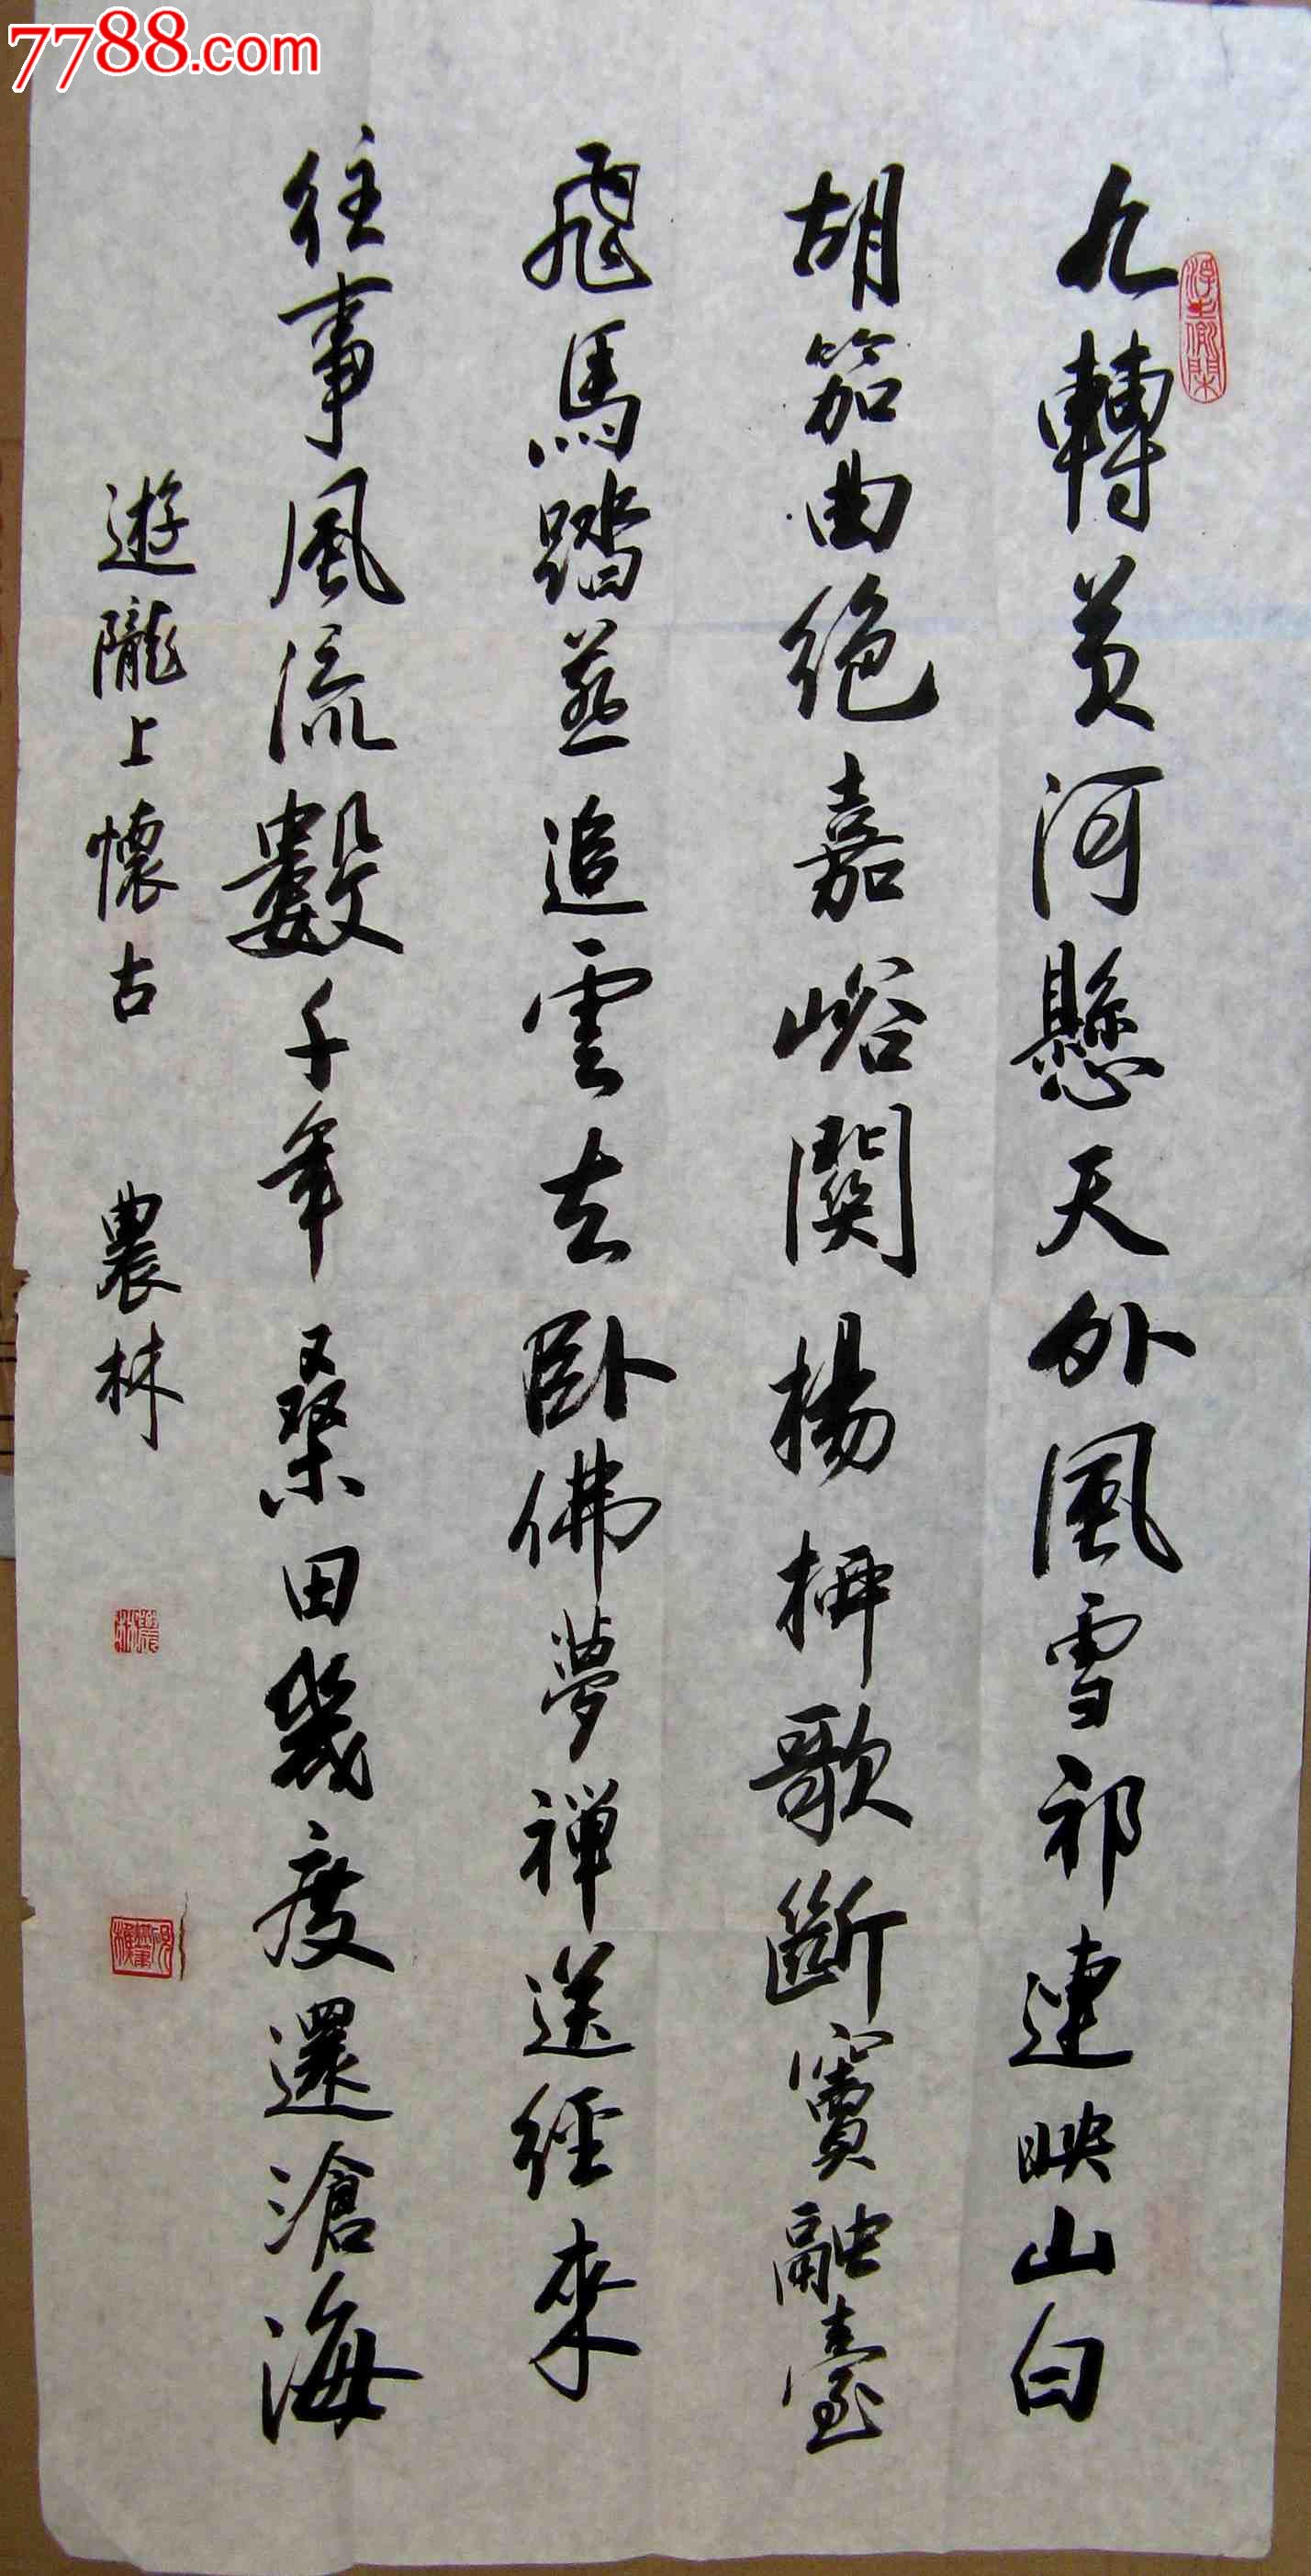 7788.com
九轉黃河懸天外風雪祁連映山白
胡笳曲絕嘉峪關楊柳歌斷竇融臺
飛馬踏燕追雲去臥佛夢禪送經來
往事風流數千年桑田幾度還滄海
遊隴上懷古 農林
浮生偷閑